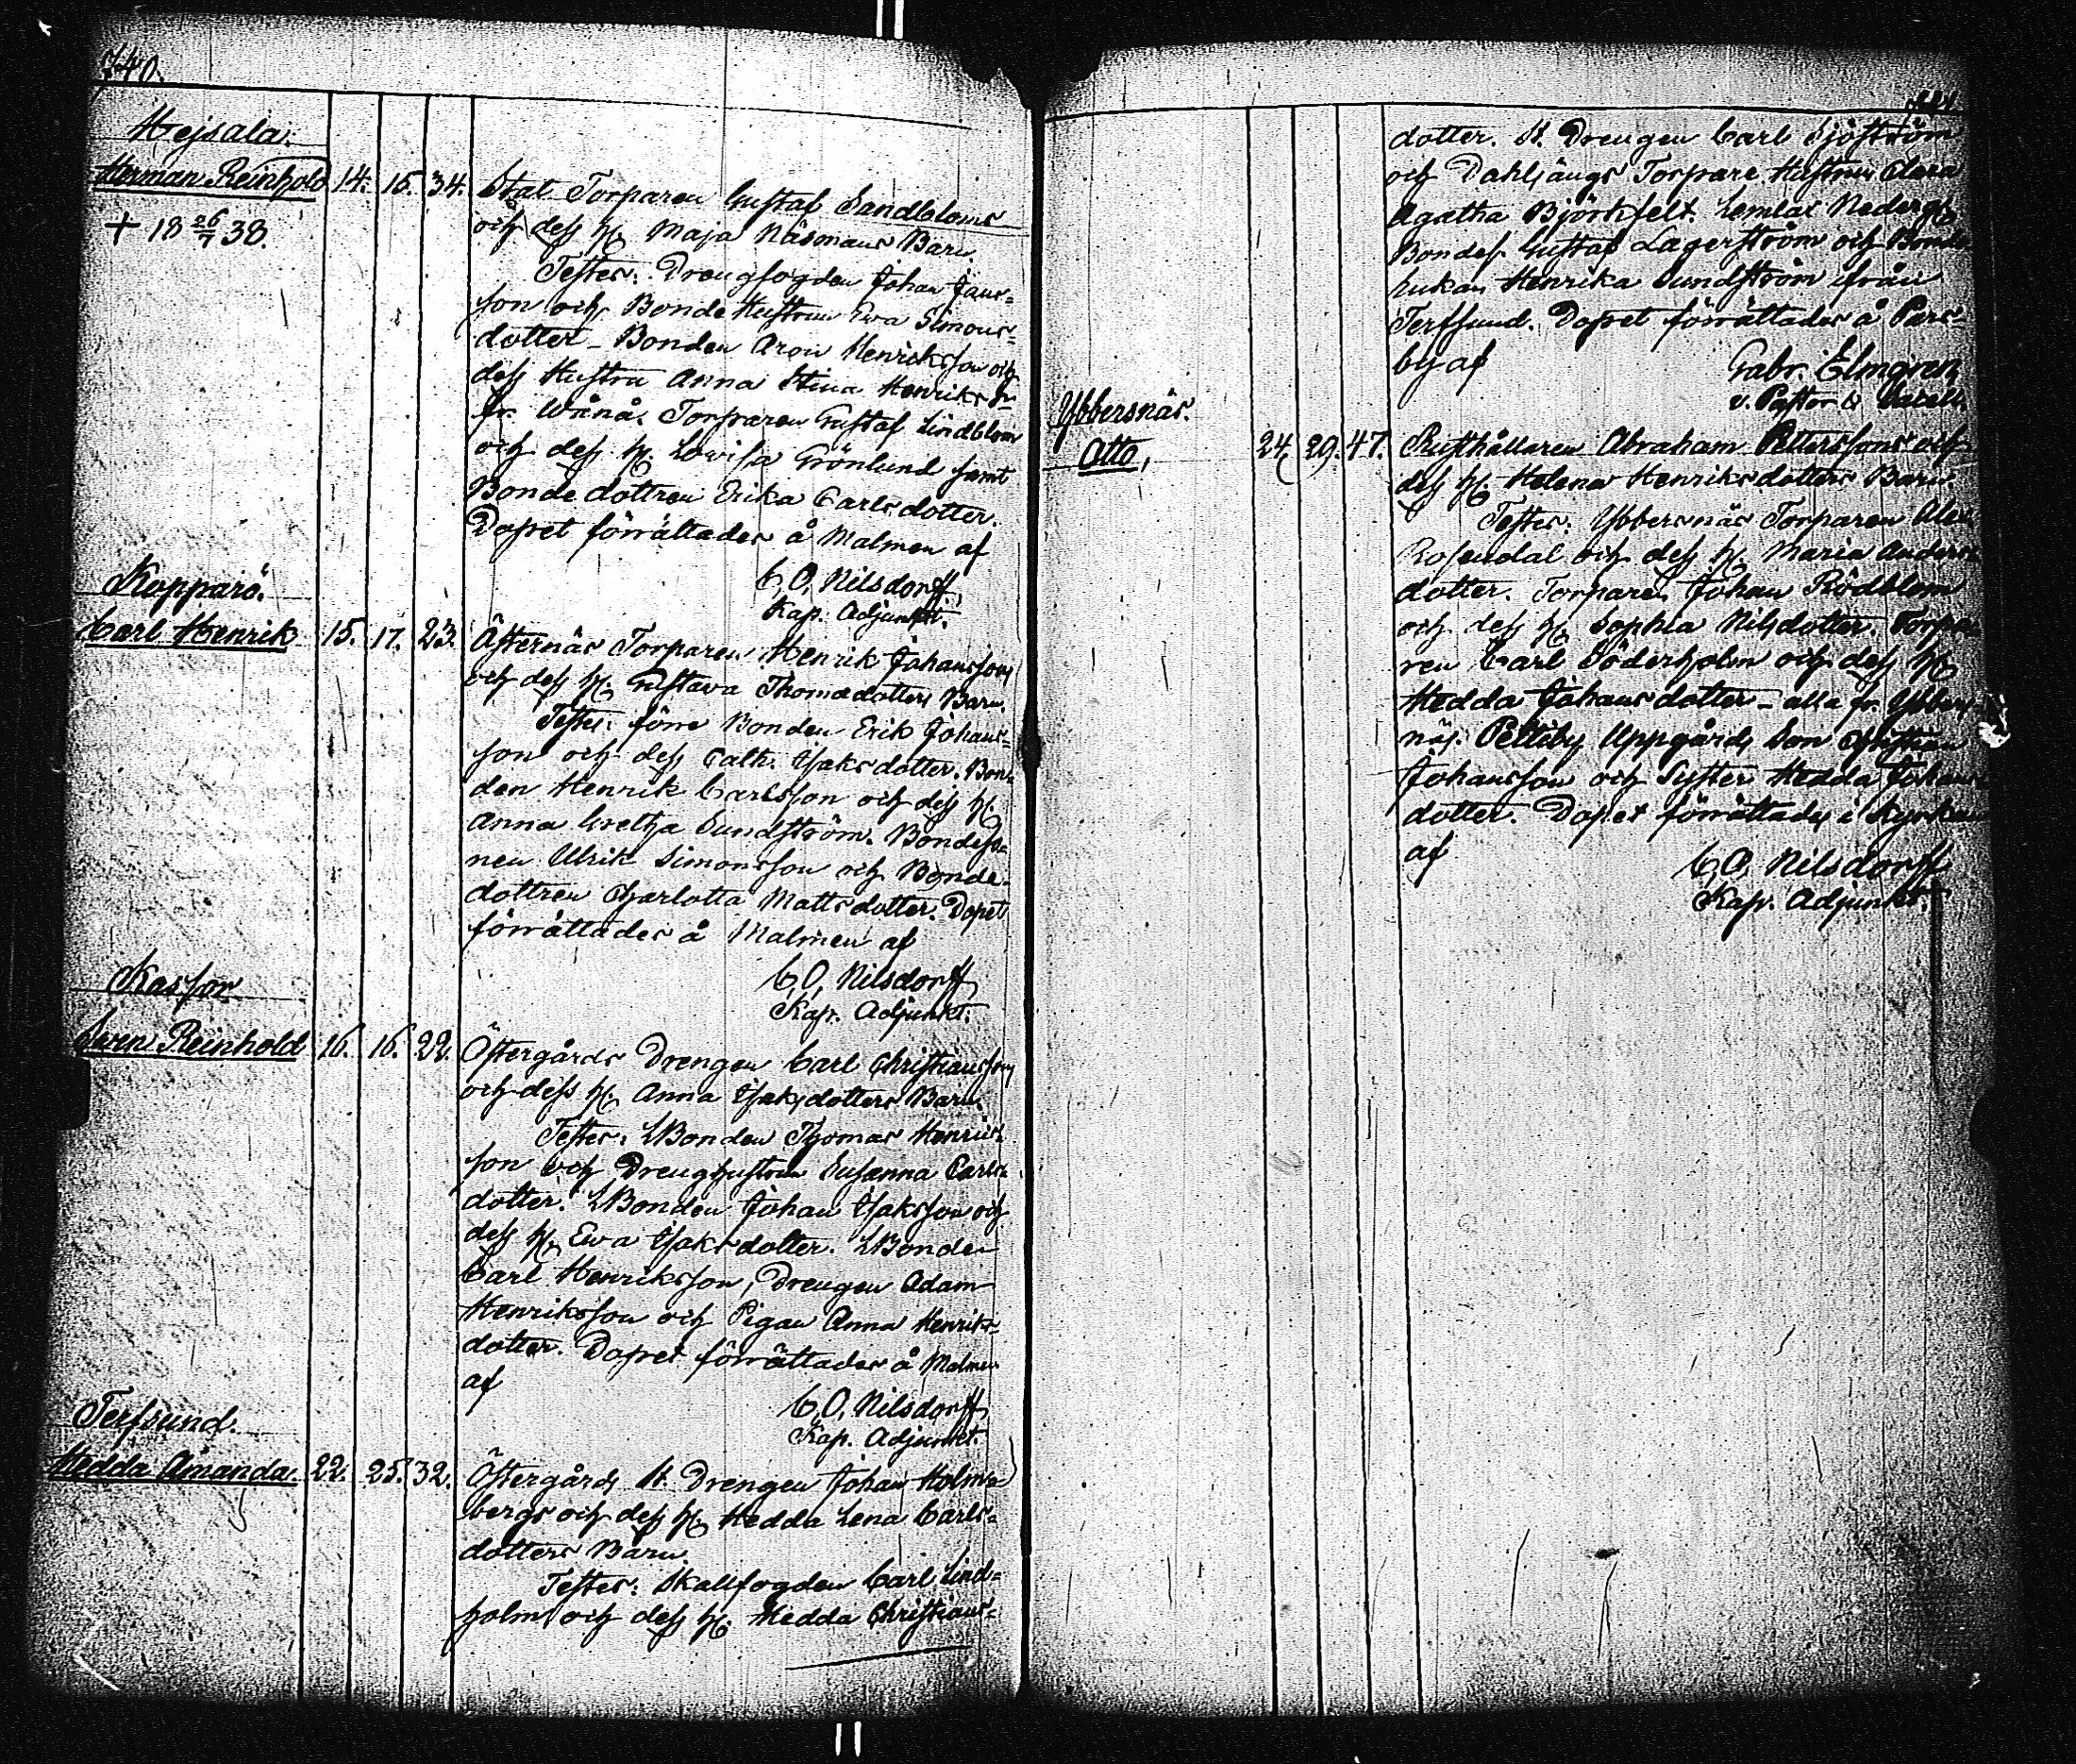 340.
Hejsala.
Herman Reinhold 14. 15. 34. Stat Torparen Gustaf Sandbloms
+ 18 26/7 38. och dess H. Maja Näsmans Barn.
Testes: Drengfogden Johan Jans=
son och Bonde Hustrun Ewa Simons=
dotter – Bonden Aron Henriksson och
dess Hustru Anna Stina Henriksdr
fr. Wånå. Torparen Gustaf Lindblom
och dess H. Lovisa Grönlund samt
Bonde dottren Erika Carlsdotter.
Dopet förrättades å Malmen af
C. O. Nilsdorff
Kap. Adjunkt.
Kopparö.
Carl Henrik 15. 17. 23. Östernäs Torparen Henrik Johanssons
och dess H. Gustava Thomædotters Barn.
Testes: förre Bonden Erik Johans=
son och dess Cath. Isaksdotter. Bon=
den Henrik Carlsson och dess H.
Anna Gretha Sundström. Bondeso=
nen Ulrik Simonsson och Bonde=
dottren Charlotta Mattsdotter. Dopet
förrättades å Malmen af
C. O. Nilsdorff
Kap. Adjunkt.
Kassor
Swen Reinhold 16. 16. 22. Östergårds Drengen Carl Christianssons
och dess H. Anna Isaksdotters Barn.
Testes: LBonden Thomas Henriks
son och Drenghustrun Susanna Carls=
dotter. LBonden Johan Isaksson och
dess H. Ewa Isaksdotter. LBonden
Carl Henriksson, Drengen Adam
Henriksson och Pigan Anna Henriks=
dotter. Dopet förrättades å Malmen
af
C. O. Nilsdorff
Kap. Adjunkt.
Terfsund.
Hedda Amanda. 22. 25. 32. Östergårds St. Drengen Johan Holm=
bergs och dess H. Hedda Lena Carls=
dotters Barn.
Testes: Skallfogden Carl Lind=
holm och dess H. Hedda Christians=
dotter. St. Drengen Carl Sjöström
och Dahlsängs Torpare Hustrun Clara
Agatha Björkfelt. Lemlax Nederg
Bondes. Gustaf Lagerström och Bonde
Enkan Henrika Sundström ifrån
Terfsund. Dopet förrättades å Pars=
by af Gabr. Elmgren
v. Pastor
Ybbersnäs.
Otto, 24. 29. 47. Rusthållaren Abraham Petterssons och
dess H. Helena Henriksdotters Barn.
Testes: Ybbersnäs Torparen Alex
Rosendal och dess H. Maria Anders
dotter. Torparen Johan Rödblom
och dess H. Sophia Nilsdotter. Torpa
ren Carl Söderholm och dess H.
Hedda Johansdotter – alla fr. Ybbers
näs. Pettiby Uppgårds Son Christian
Johansson och Syster Hedda Johans
dotter. Dopet förrättades i Kyrkan
af
C. O. Nilsdorff
Kap. Adjunkt.